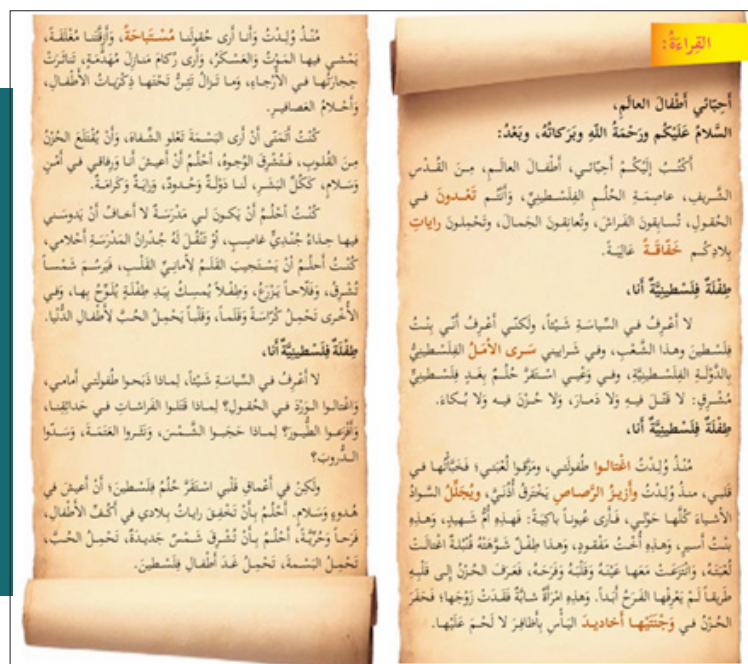 القِراءَةُ:
أَحِبّائي أَطْفالَ العالَمِ،
السَّلامُ عَلَيْكُم ورَحْمَةُ اللهِ وبَرَكاتُهُ، وبَعْدُ:
أَكْتُبُ إِلَيْكُمْ أَحِبّائي، أَطْفالَ العالَمِ، مِنَ القُدْسِ
الشَّريفِ، عاصِمَةِ الحُلُمِ الفِلَسْطينِيِّ، وَأَنْتُم تَعْدونَ في
الحُقولِ، تُسابِقونَ الفَراشَ، وتُعانِقونَ الجَمالَ، وتَحْمِلونَ راياتِ
بِلادِكُم خَفّاقَةً عالِيَةً.
طِفْلَةٌ فِلَسْطينِيَّةٌ أَنا،
لا أَعْرِفُ في السِّياسَةِ شَيْئاً، ولَكِنّي أَعْرِفُ أَنّي بِنْتُ
فِلَسْطينَ وهذا الشَّعْبِ، وفي شَراييني سَرى الأَمَلُ الفِلَسْطينِيُّ
بِالدَّوْلَةِ الفِلَسْطينِيَّةِ، وفي وَعْيي اسْتَقَرَّ حُلُمٌ بِغَدٍ فِلَسْطينِيٍّ
مُشْرِقٍ: لا قَتْلَ فيهِ وَلا دَمارَ، وَلا حُزْنَ فيه وَلا بُكاءَ.
طِفْلَةٌ فِلَسْطينِيَّةٌ أَنا،
مُنْذُ وُلِدْتُ اغْتالوا طُفولَتي، ومَزَّقوا لُعْبَتي؛ فَخَبَّأْتُها في
قَلبي، منذُ وُلِدْتُ وأَزيزُ الرَّصاصِ يَخْتَرِقُ أُذُنَيَّ، ويُجَلِّلُ السَّوادُ
الأَشْياءَ كُلَّها حَوْلي، فَأَرى عُيوناً باكِيَةً: فَهذِهِ أُمُّ شَهيدٍ، وَهذِهِ
بِنْتُ أَسيرٍ، وَهذِهِ أُخْتُ مَفْقودٍ، وَهذا طِفْلٌ شَوَّهَتْهُ قُنْبُلَةٌ اغْتالَتْ
لُعْبَتَهُ، وَانْتَزَعَتْ مَعَها عَيْنَهُ وَقَلْبَهُ وَفَرَحَهُ، فَعَرَفَ الحُزْنُ إِلى قَلْبِهِ
طَريقاً لَمْ يَعْرِفْها الفَرَحُ أَبَداً. وَهذِهِ امْرَأَةٌ شابَّةٌ فَقَدَتْ زَوْجَها؛ فَحَفَرَ
الحُزْنُ في وَجْنَتَيْها أَخاديدَ اليَأْسِ بِأَظافِرَ لا لَحْمَ عَلَيْها.
مُنْذُ وُلِدْتُ وَأَنا أَرى حُقولَنا مُسْتَباحَةً، وَأَزِقَّتَنا مُغْلَقَةً،
يَمْشي فيها المَوْتُ والعَسْكَرُ، وَأَرى رُكامَ مَنازِلَ مُهَدَّمَةٍ، تَناثَرَتْ
حِجارَتُها في الأَرْجاءِ، وَما تَزالُ تَئِنُّ تَحْتَها ذِكْرَياتُ الأَطْفالِ،
وَأَحْلامُ العَصافيرِ.
كُنْتُ أَتَمَنّى أَنْ أَرى البَسْمَةَ تَعْلو الشِّفاهَ، وَأَنْ يُقْتَلَعَ الحُزْنُ
مِنَ القُلوبِ، فَتُشْرِقَ الوُجوهُ، أَحْلُمُ أَنْ أَعيشَ أَنا وَرِفاقي في أَمْنٍ
وَسَلامٍ، كَكُلِّ البَشَرِ، لَنا دَوْلَةٌ وَحُدودٌ، وَرايَةٌ وَكَرامَةٌ.
كُنْتُ أَحْلُمُ أَنْ يَكونَ لي مَدْرَسَةٌ لا أَخافُ أَنْ يَدوسَني
فيها حِذاءُ جُنْدِيٍّ غاصِبٍ، أَوْ تُنْقَلَ لَهُ جُدْرانُ المَدْرَسَةِ أَحْلامي،
كُنْتُ أَحلُمُ أَنْ يَسْتَجيبَ القَلَمُ لِأَمانِيِّ القَلْبِ، فَيَرْسُمَ شَمْساً
تُشْرِقُ، وَفَلّاحاً يَزْرَعُ، وَطِفْلاً يُمسِكُ بِيَدِ طِفْلَةٍ يُلَوِّحُ بِها، وَفي
الأُخْرى تَحْمِلُ كُرّاسَةً وَقَلَماً، وَقَلْباً يَحْمِلُ الحُبَّ لِأَطْفالِ الدُّنْيا.
طِفْلَةٌ فِلَسْطينِيَّةٌ أَنا،
لا أَعْرِفُ في السِّياسَةِ شَيْئاً، لِماذا ذَبَحوا طُفولَتي أَمامي،
وَاغْتالوا الوَرْدَ في الحُقولِ؟ لِماذا قَتَلوا الفَراشاتِ في حَدائِقِنا،
وَأَفْزَعوا الطُّيورَ؟ لِماذا حَجَبوا الشَّمْسَ، وَنَشَروا العَتَمَةَ، وَسَدّوا
الدُّروبَ؟
ولَكِنْ في أَعْماقِ قَلْبي اسْتَقَرَّ حُلُمُ فِلَسْطينَ؛ أَنْ أَعيشَ في
هُدوءٍ وَسَلامٍ. أَحْلُمُ بِأَنْ تَخْفِقَ راياتُ بِلادي في أَكُفِّ الأَطْفالِ،
فَرَحاً وَحُرِّيَّةً، أَحْلُمُ بِأَنْ تُشْرِقَ شَمْسٌ جَديدَةٌ، تَحْمِلُ الحُبَّ،
تَحْمِلُ البَسْمَةَ، تَحْمِلُ غَدَ أَطْفالِ فِلَسْطينَ.